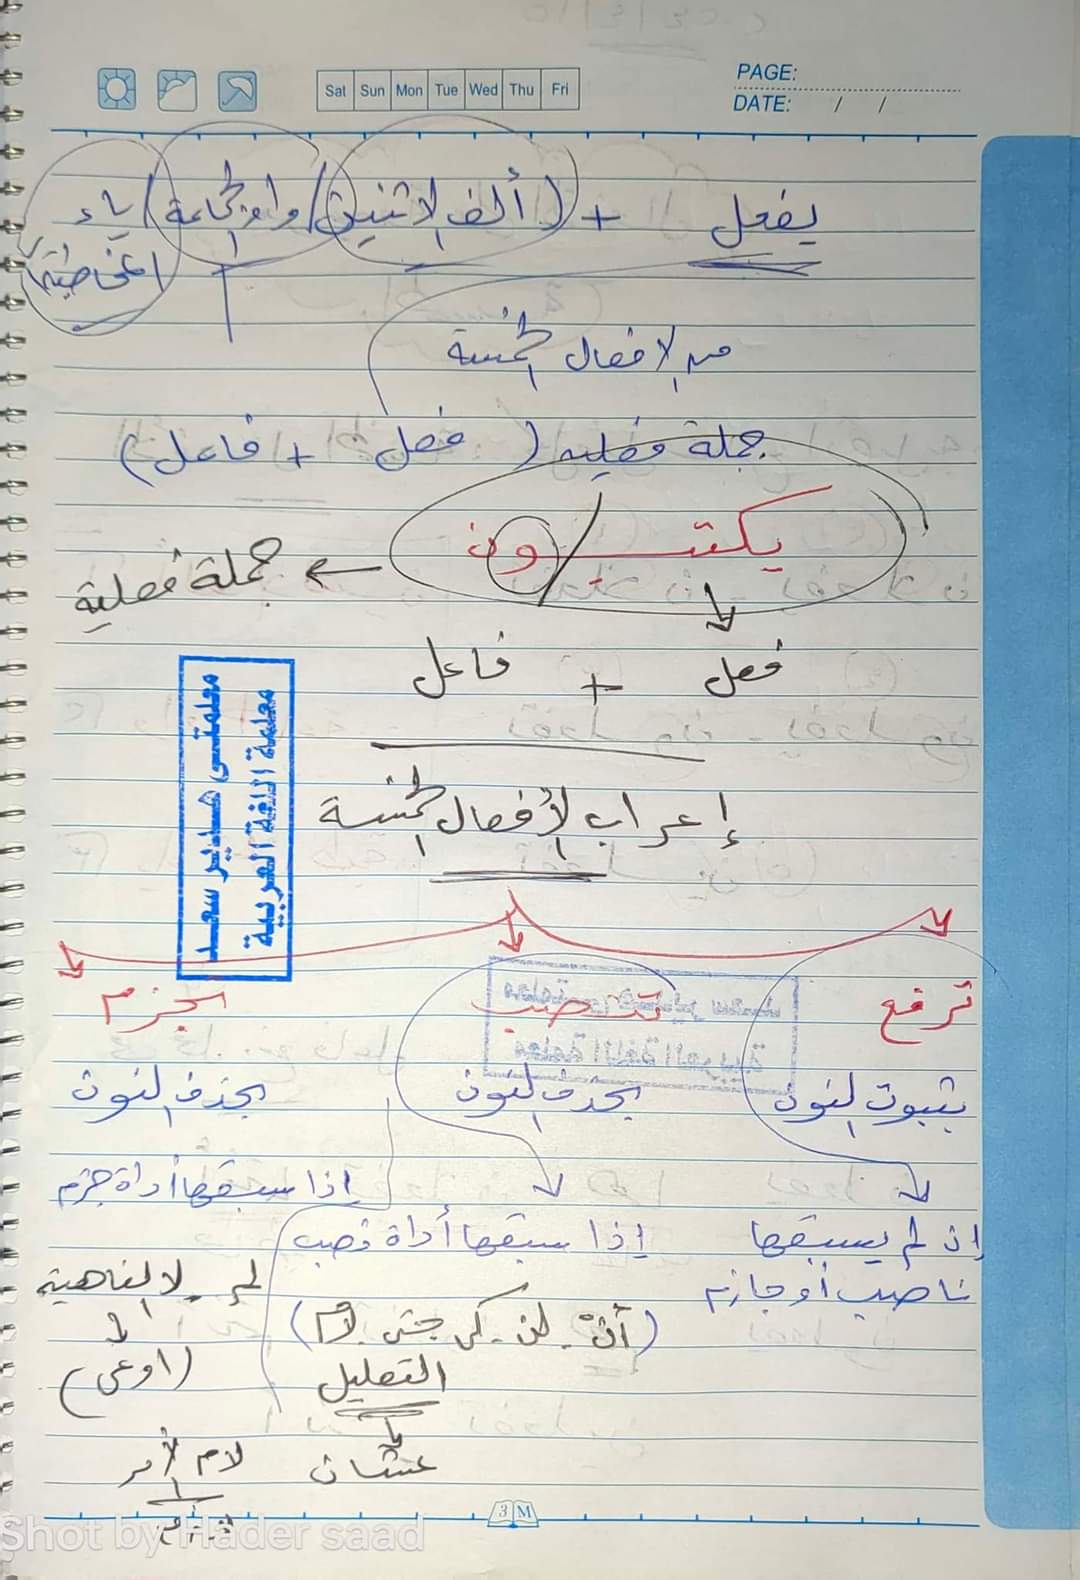 PAGE:
Sat Sun Mon Tue Wed Thu Fri
DATE: / /
يفعل + (ألف الاثنين / واو الجماعة / ياء
المخاطبة)
من الافعال الخمسة
جملة فعليه ( فعل + فاعل )
يكتبـ / ون
← جملة فعلية
فعل + فاعل
معلمتى هدير سعد
معلمة اللغة العربية
إعراب الأفعال الخمسة
ترفع
تنصب
تجزم
بثبوت النون
بحذف النون
بحذف النون
إن لم يسبقها
ناصب أو جازم
إذا سبقها أداة نصب
(أن - لن - كي - حتى - لام)
التعليل
عشان
إذا سبقها أداة جزم
لم - لا الناهية
(اوعى)
لام الأمر
3 M
Shot by Hader saad